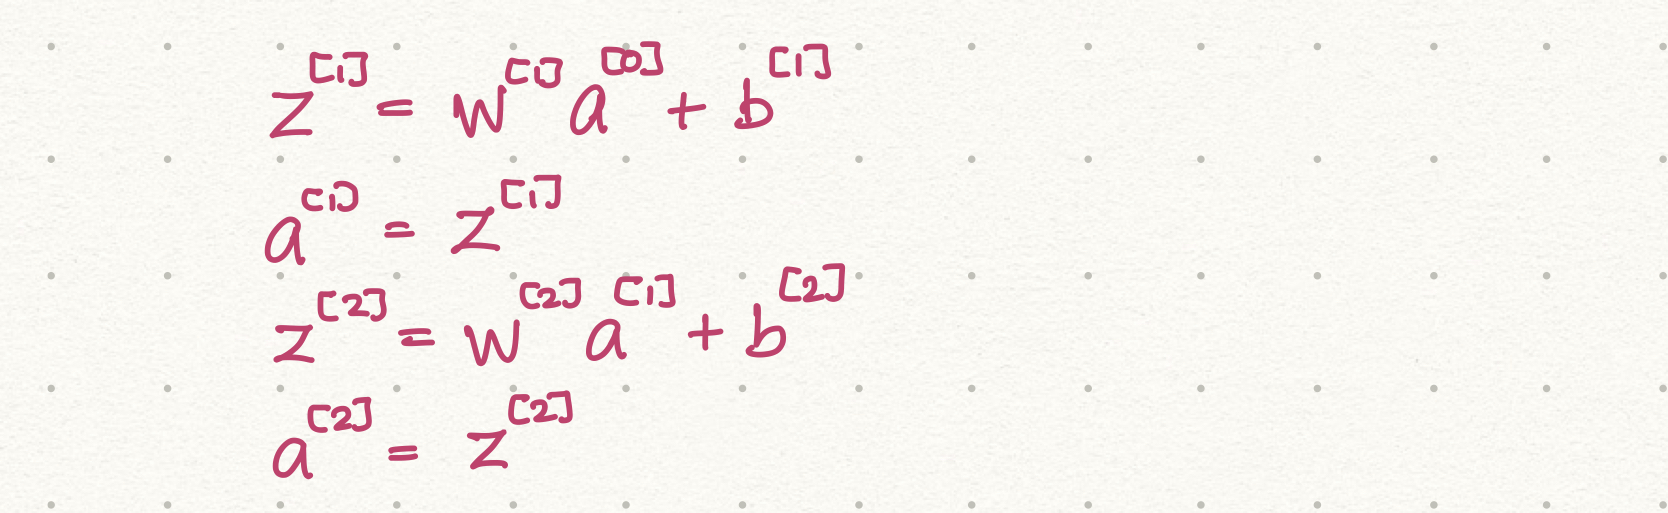 z^[1] = w^[1] a^[0] + b^[1]
a^[1] = z^[1]
z^[2] = w^[2] a^[1] + b^[2]
a^[2] = z^[2]